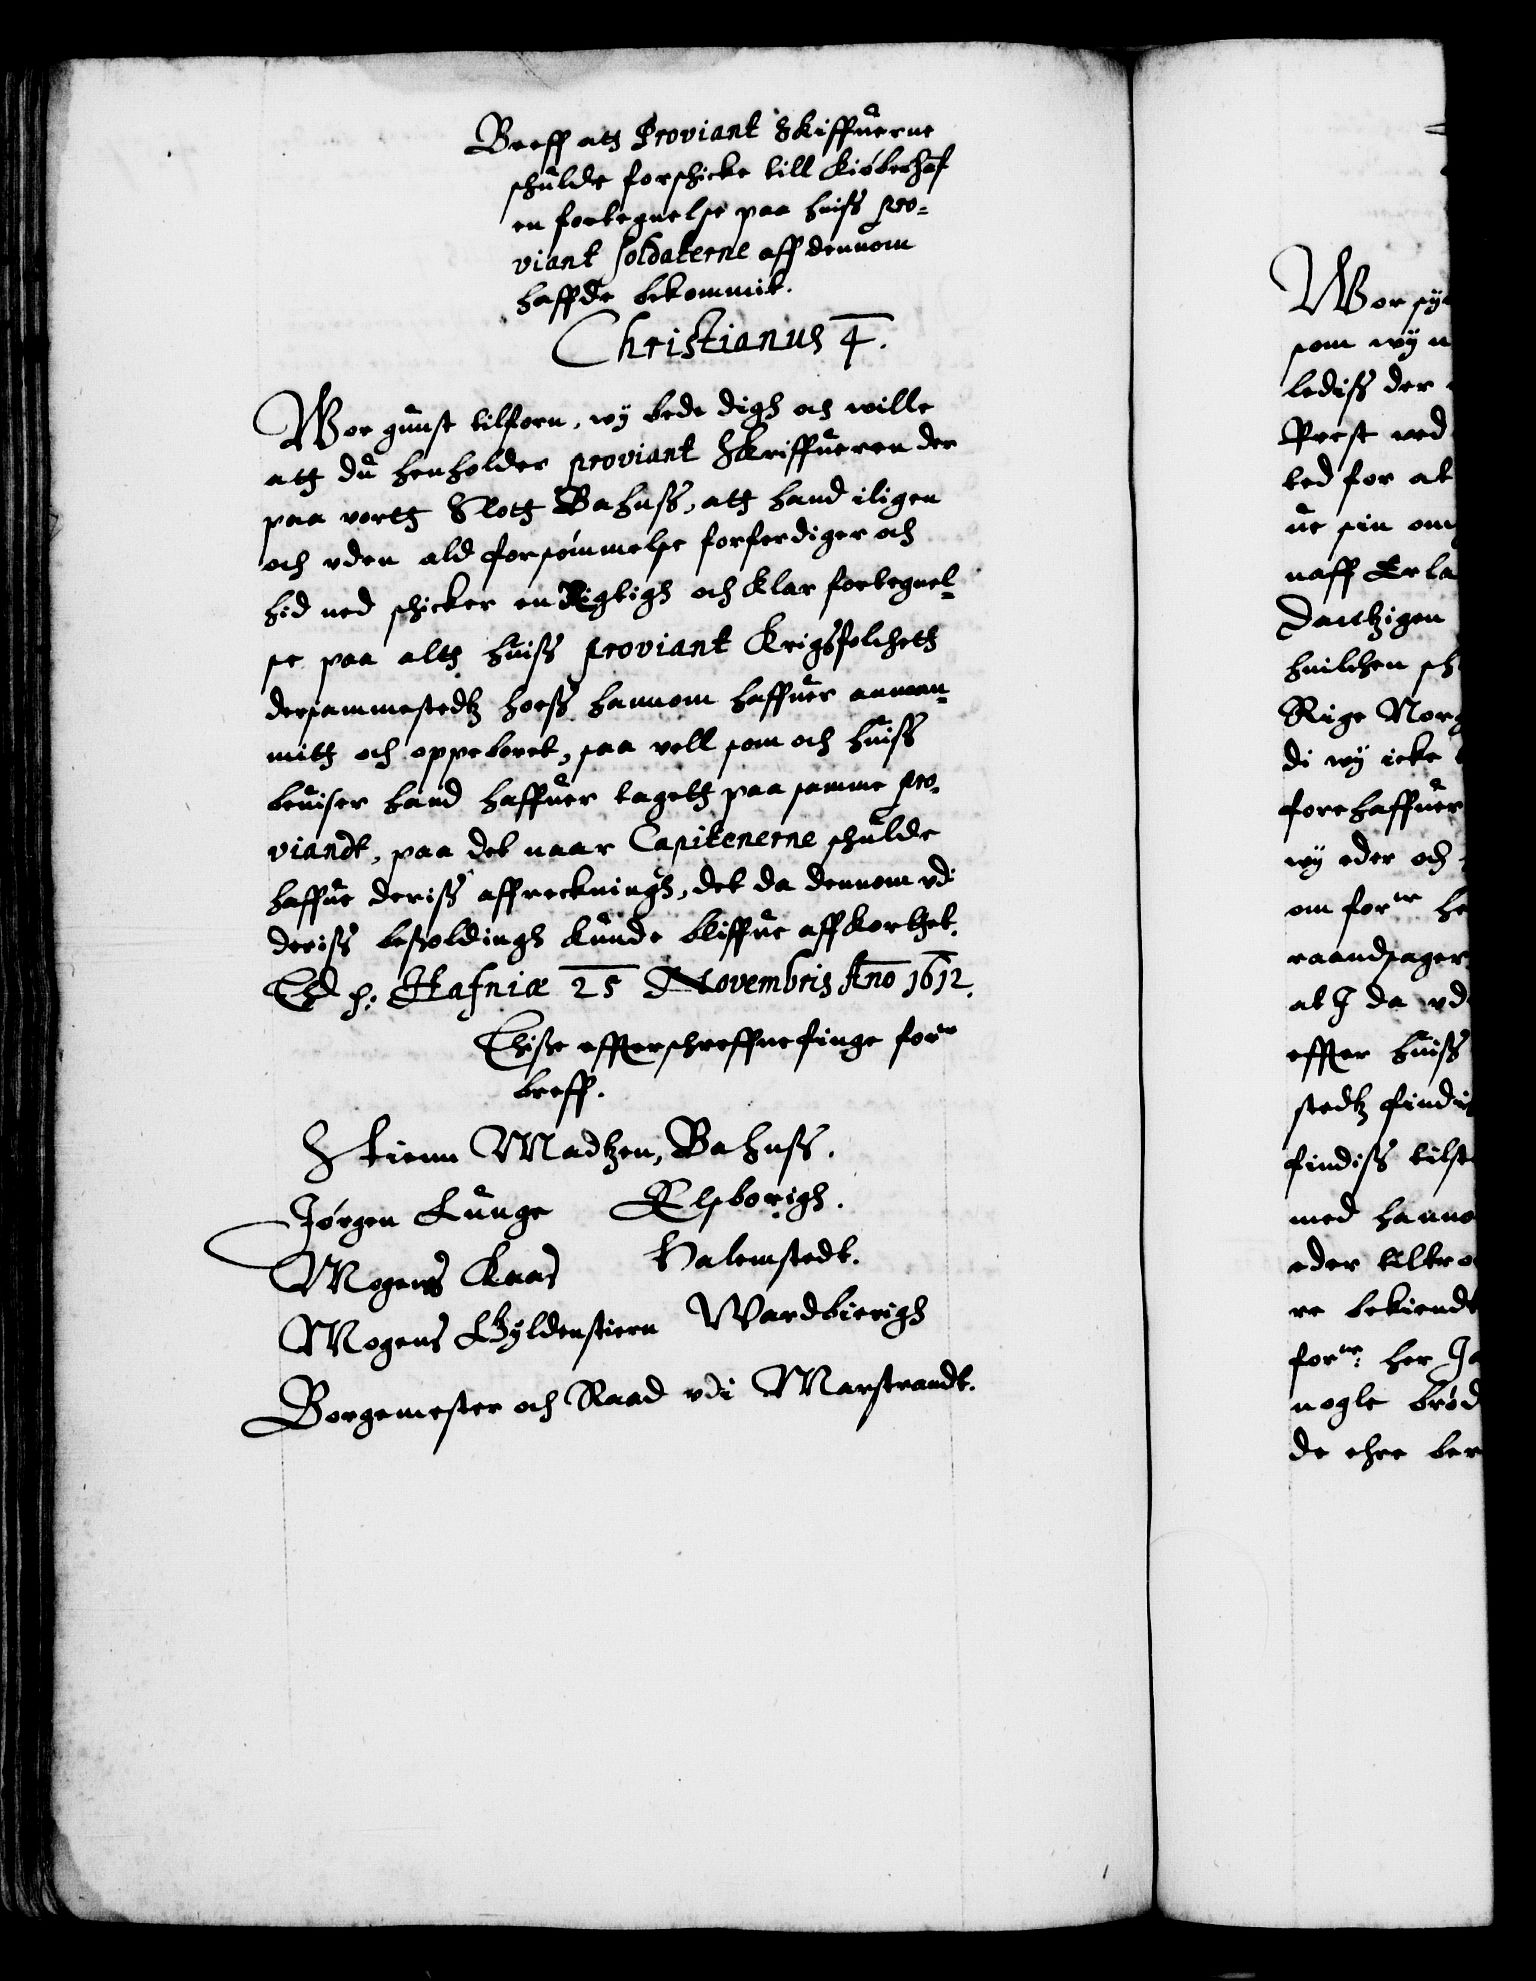 Breff att Proviant Skiffuerne
schulde forschicke till Kiøbenhaf
en fortegnelse paa huiss pro-
viant soldaterne aff dennom
haffde bekommit.
Christianus 4.
Wor gunst tilforn, wy bede digh och wille
att du henholder proviant Skriffueren der
paa vortt Slott Bahuss, att hand iligen
och vden ald forsømmelse forferdiger och
hid ned schicker en Rigtigh och klar fortegnel-
se paa altt huiss proviant Krigsfolcheth
dersammestedtz hoess hannom haffuer annam-
mitt och oppeboret, saa vell som och huiss
beuiser hand haffuer tagett paa samme pro-
viandt, paa det naar Capitenerne schulde
haffue deriss affreckningh, det da dennom vdi
deriss besoldingh kunde bliffue affkorthet.
Hafniæ 25 Novembris Ano 1612.
Thisse effterschreffne finge forne
breff.
Stienn Madtzen, Bahuss.
Jørgen Lunge Elsborigh.
Mogens Kaas Halemstedt.
Mogens Gyldenstiern Wardbierigh
Borgemester och Raad vdi Marstrandt.
Wor sy
som wy n
lediss der
Prest ved
ted for at
ue sin om
naff Erla
Dantzigen
huilchen sch
Rige Norg
di wy icke
forehaffuer
wy eder och
om forne he
raandsager
at J da vd
effter huiss
stedtz findi
findiss tilst
med hanno
eder tiltro
re bekiendt
forne: her Ja
nogle brød
de ehre ber